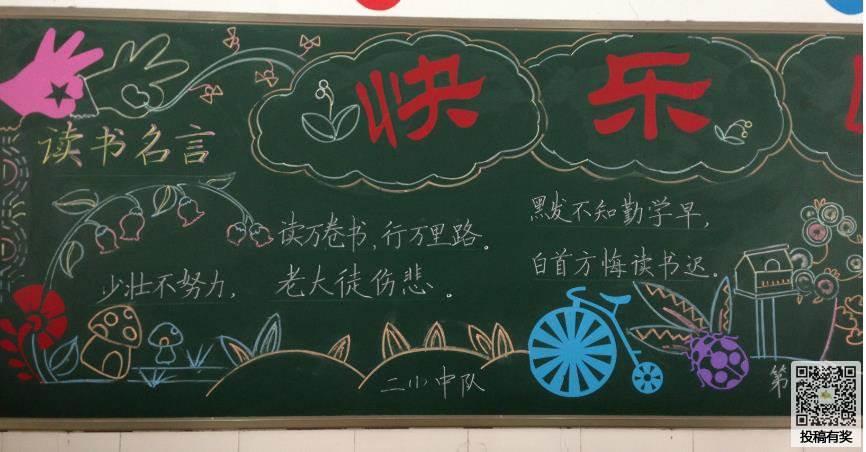 快乐
读书名言
读万卷书,行万里路。
少壮不努力, 老大徒伤悲。
黑发不知勤学早,
白首方悔读书迟。
二小中队
第
投稿有奖